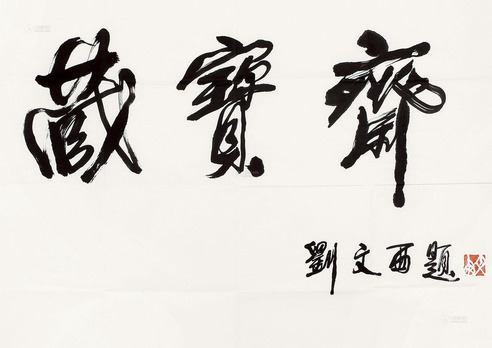 藏寶齋
劉文西題